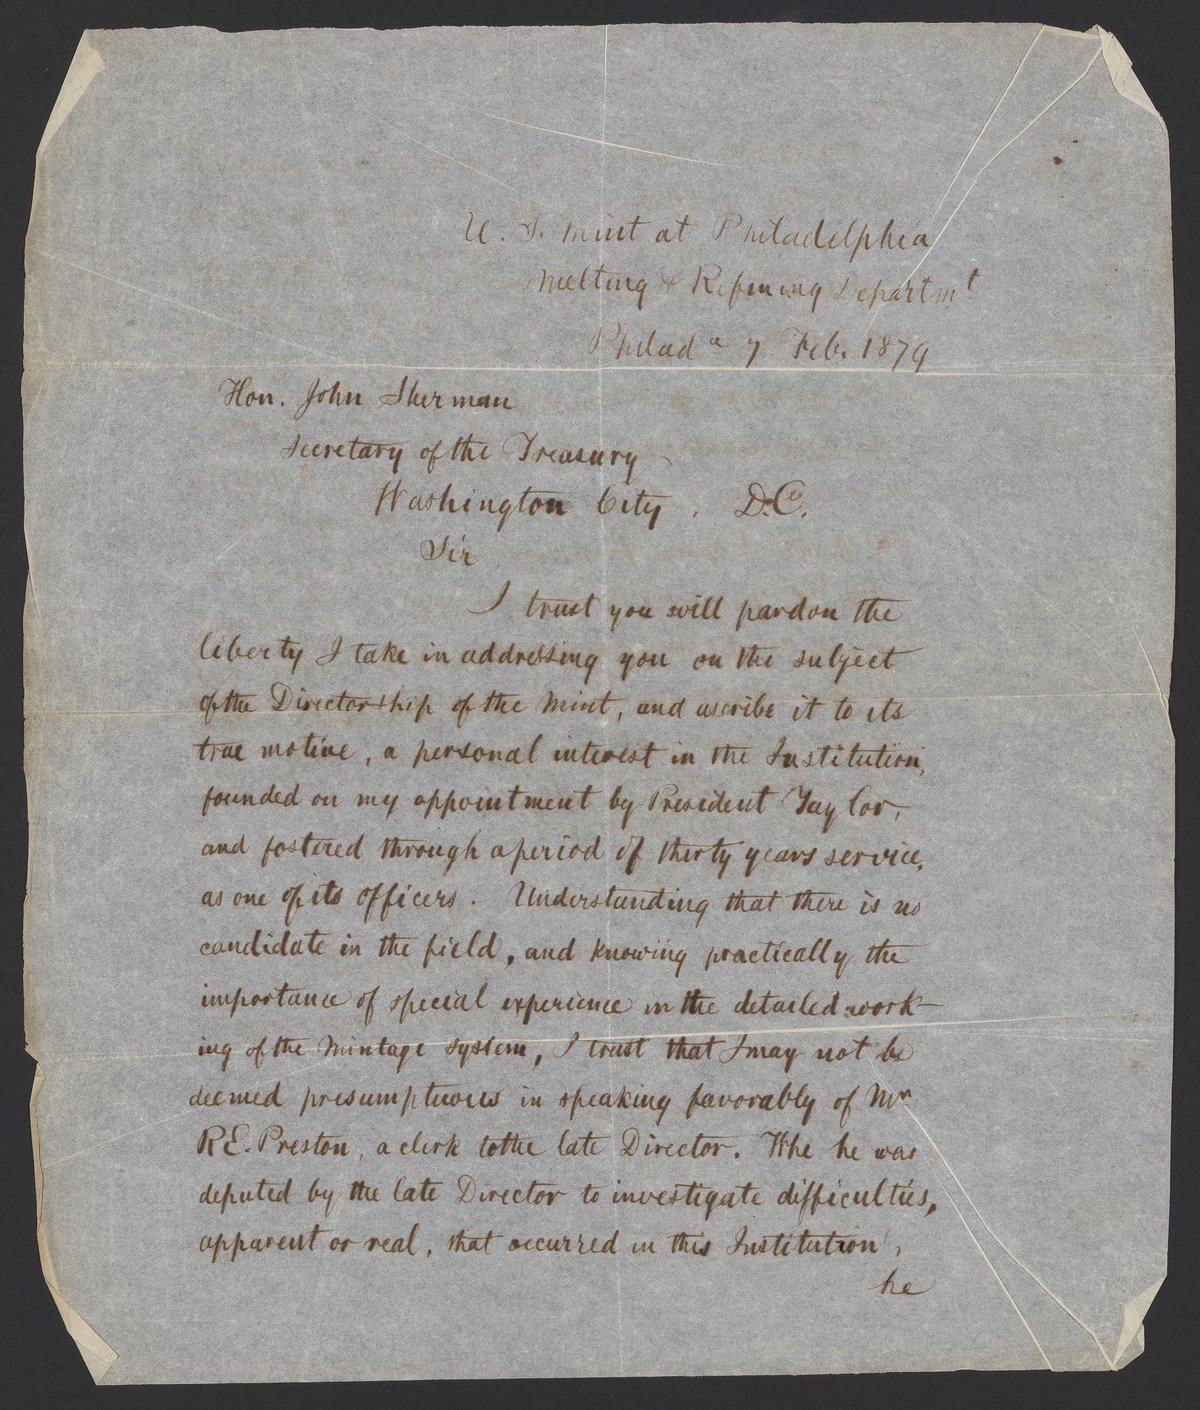 U. S. Mint at Philadelphia
Melting & Refining Departmt
Philada 7 Feb. 1879
Hon. John Sherman
Secretary of the Treasury
Washington City, D.C.
Sir
I trust you will pardon the
liberty I take in addressing you on the subject
of the Directorship of the Mint, and ascribe it to its
true motive, a personal interest in the Institution,
founded on my appointment by President Taylor,
and fostered through a period of thirty years service,
as one of its officers. Understanding that there is no
candidate in the field, and knowing practically the
importance of special experience in the detailed work-
ing of the Mintage system, I trust that I may not be
deemed presumptuous in speaking favorably of Mr
R.E. Preston, a clerk to the late Director. Whe he was
deputed by the late Director to investigate difficulties,
apparent or real, that occurred in this Institution,
he